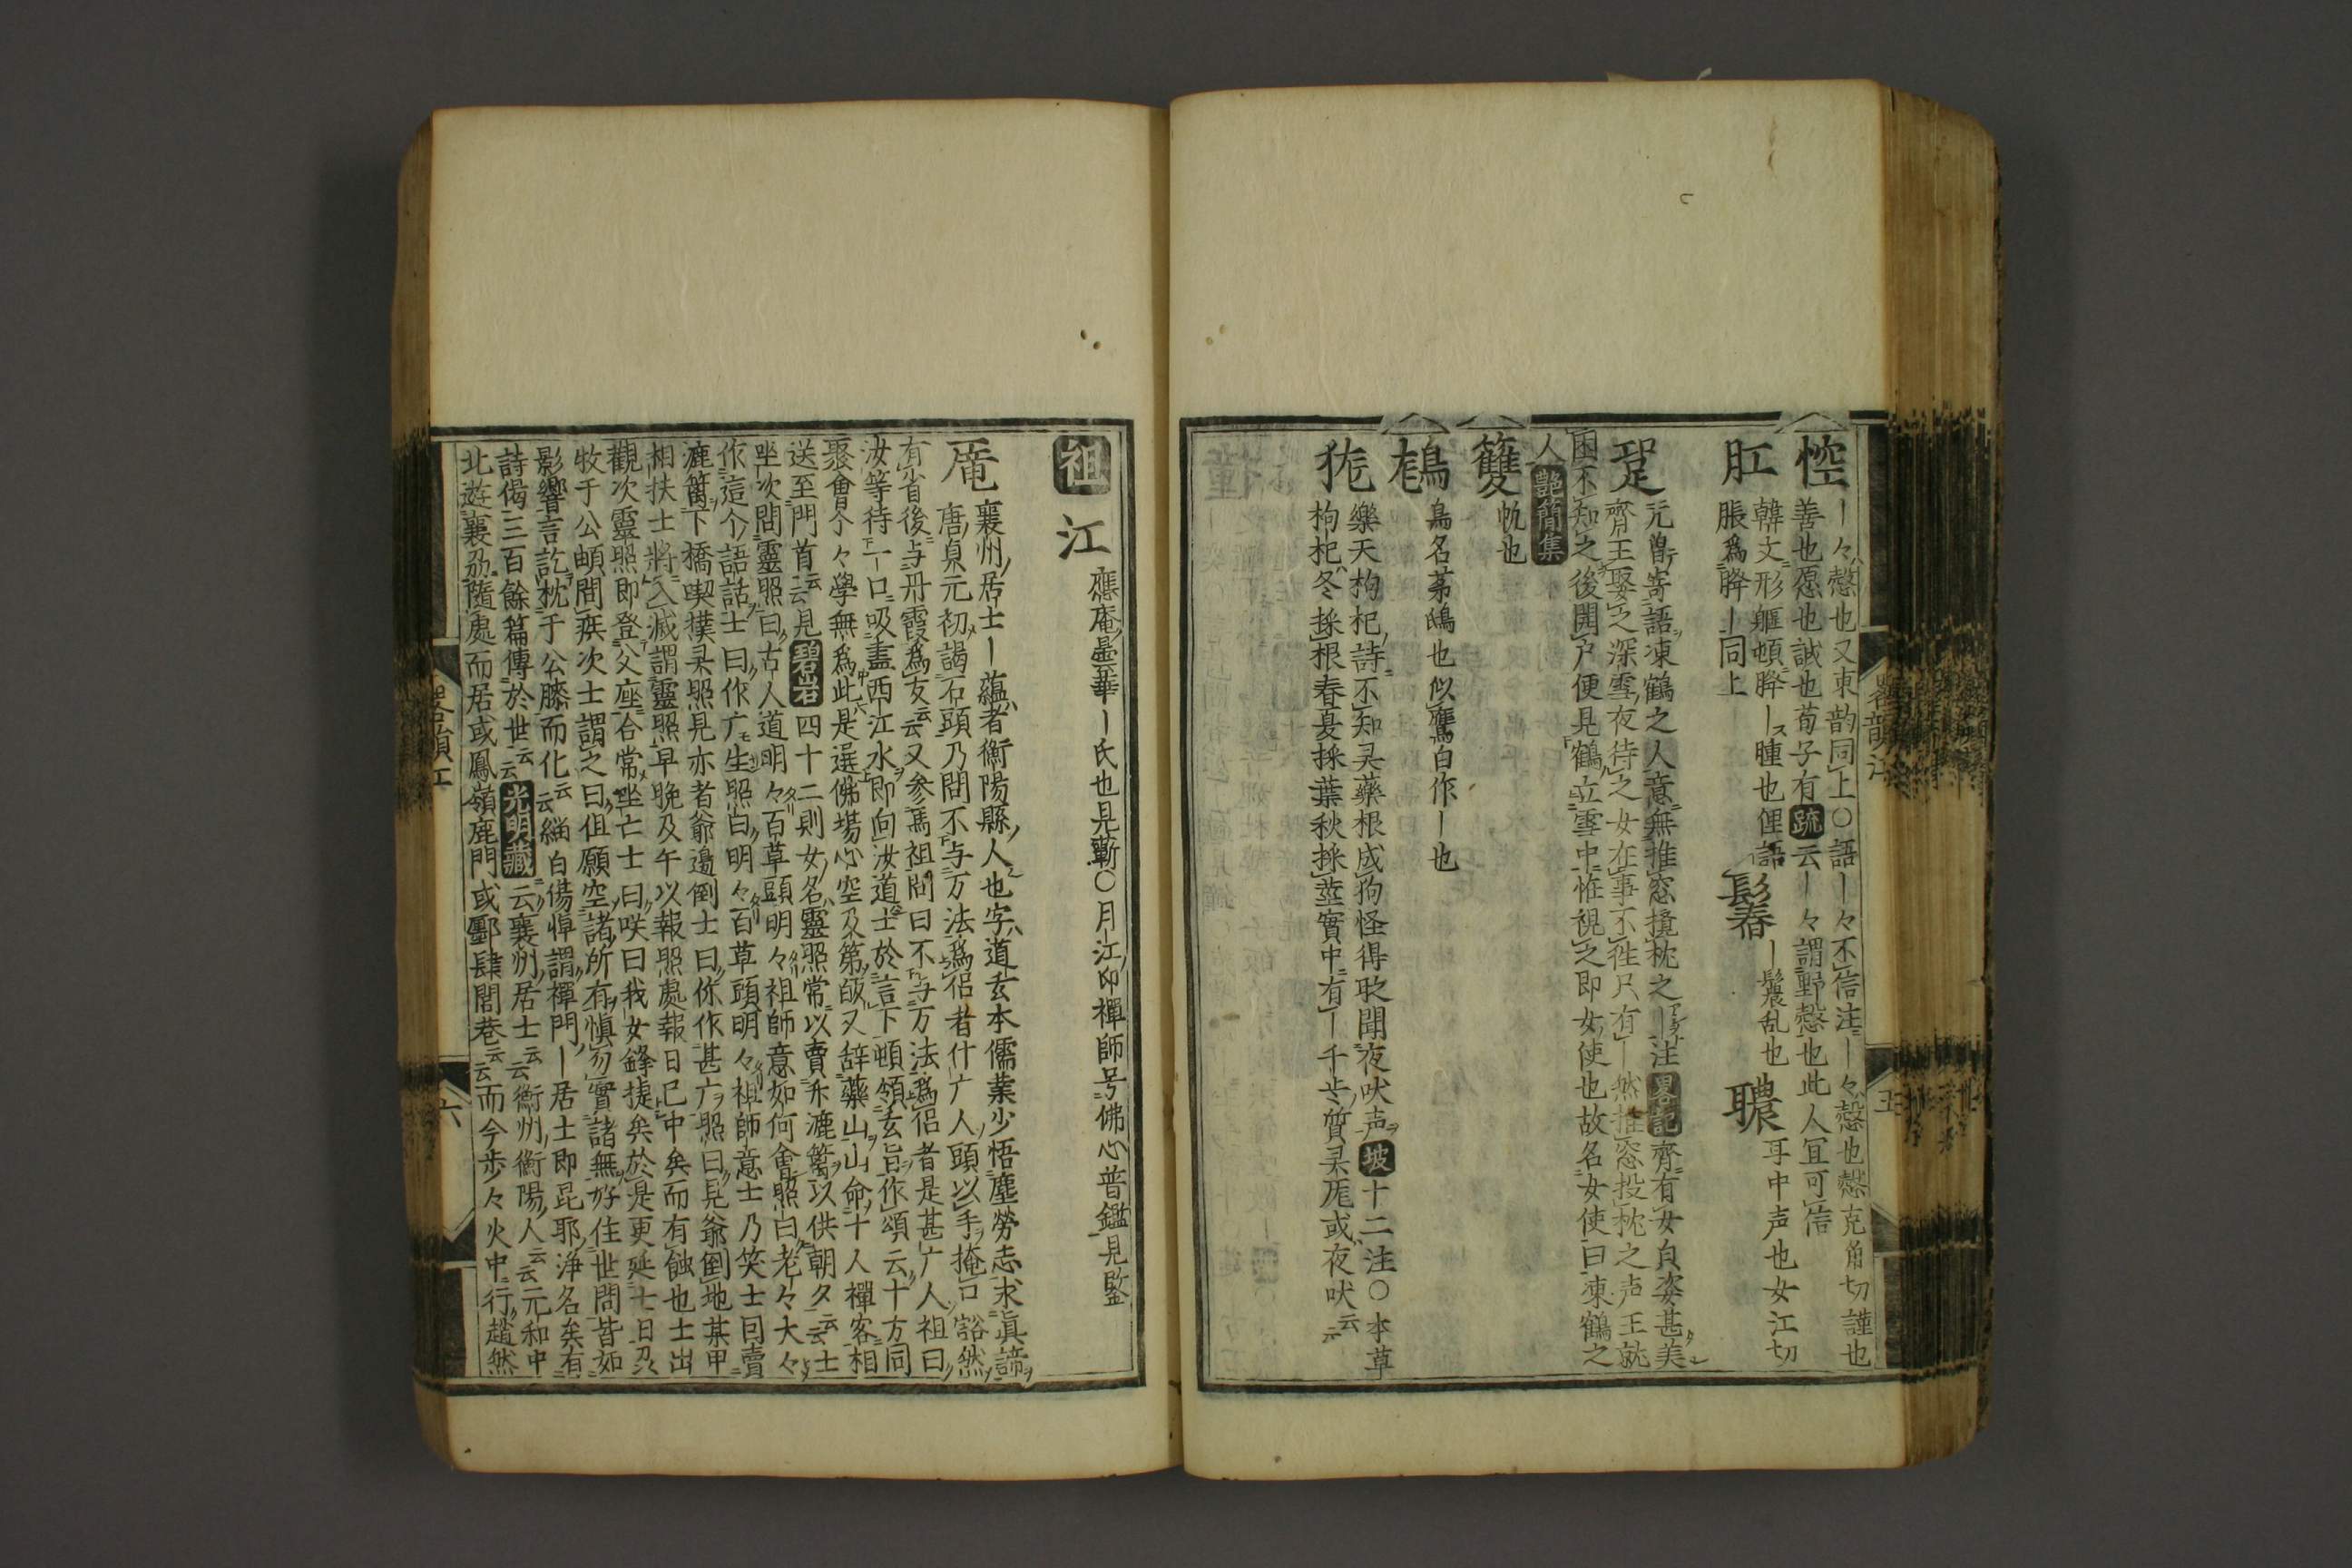 悾
ー々愨也又東韵同上〇語ー々不信注ー々愨也愨克角切謹也
善也愿也誠也荀子有疏云ー々謂野愨也此人冝可信
肛
韓文形軀頓胮ー腫也俚語
脹爲胮ー同上
鬆
ー鬤乱也
聸
耳中声也女江切
元曽寄語凍鶴之人意無推窓撹枕之ー注畧記齊有女貞姿甚美
齊王娶之深雪夜待之女在事不徃只有ー然推窓投枕之声王就
困不知之後開户便見鶴立雪中惟視之即女使也故名女使曰凍鶴之
人艶簡集
籆
帆也
鳥名茅鴟也似鷹白作ー也
狵
樂天枸杞詩不知灵藥根成狗怪得聅聞夜吠声坡十二注〇本草
枸杞冬採根春夏採葉秋採莖實中有ー千歩質灵厖或夜吠云云
畧韵江
五
祖
江
應庵曇華ー氏也見蘄〇月江印禪師号佛心普鑑見監
厖
襄州居士ー蘊者衡陽縣人也字道玄本儒業少悟塵勞志求眞諦
唐貞元初謁石頭乃問不与万法爲侶者什广人頭以手掩口豁然
有省後与丹霞爲友云云又参馬祖問曰不与万法爲侶者是甚广人祖曰
汝等待一口吸盡西江水即向汝道士於言下頓領玄旨作頌云十方同
聚會个々學無爲此是選佛塲心空及第皈又辞藥山山命十人禪客相
送至門首云云見碧岩四十二則女名靈照常以賣禾漉篱以供朝夕云云士
坐次問靈照曰古人道明々百草頭明々祖師意如何會照曰老々大々
作這个語話士曰作广生照曰明々百草頭明々祖師意士乃笑士因賣
漉篱下橋喫撲灵照見亦者爺邉倒士曰你作甚广照曰見爺倒地某甲
相扶士將入滅謂靈照早晩及午以報照處報日已中矣而有蝕也士出
觀次靈照即登父座合常坐亡士曰咲曰我女鋒捷矣於是更延七日刕
牧于公䪼間疾次士謂之曰但願空諸所有愼勿實諸無好住世間皆如
影響言訖枕于公膝而化云云緇白傷悼謂禪門ー居士即昆耶淨名矣有
詩偈三百餘篇傳於世云云光明藏云襄州居士云云衡州衡陽人云云元和中
北遊襄刕隨處而居或鳳嶺鹿門或鄽肆閭巷云云而今歩々火中行趙然
六